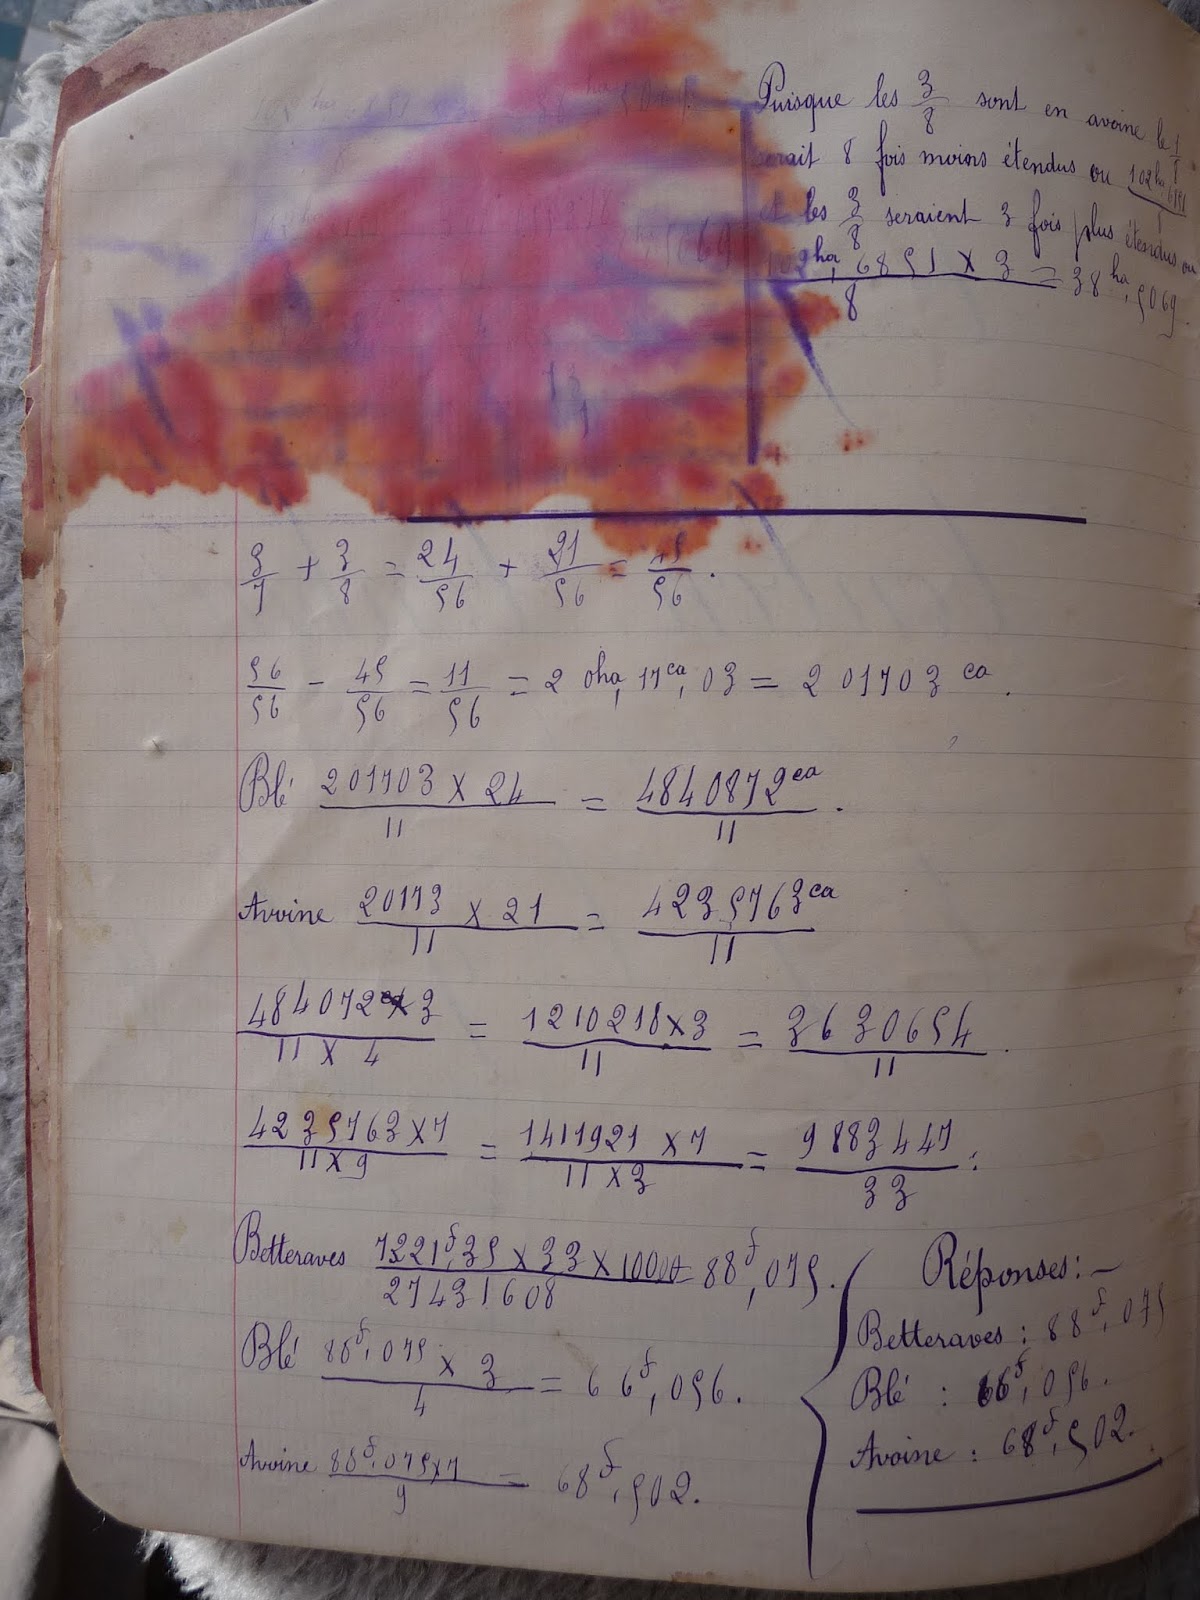 Puisque les 3/8 sont en avoine le 1/8
serait 8 fois moins étendus ou 102ha,6851/8
et les 3/8 seraient 3 fois plus étendus ou
102ha,6851 x 3 / 8 = 38ha,5069
3/7 + 3/8 = 24/56 + 21/56 = 45/56.
56/56 - 45/56 = 11/56 = 2 0ha, 17ca, 03 = 201703 ca.
Blé 201703 x 24 / 11 = 4840872ca / 11.
Avoine 20173 x 21 / 11 = 4235763ca / 11
484072 x 3 / 11 x 4 = 1210218 x 3 / 11 = 3630654 / 11.
4235763 x 7 / 11 x 9 = 1411921 x 7 / 11 x 3 = 9883447 / 33 :
Betteraves 7221f,35 x 33 x 10000 / 27431608 = 88f,075.
Blé 88f,075 x 3 / 4 = 66f,056.
Avoine 88f,075 x 7 / 9 = 68f,502.
Réponses :
Betteraves : 88f,075
Blé : 66f,056.
Avoine : 68f,502.